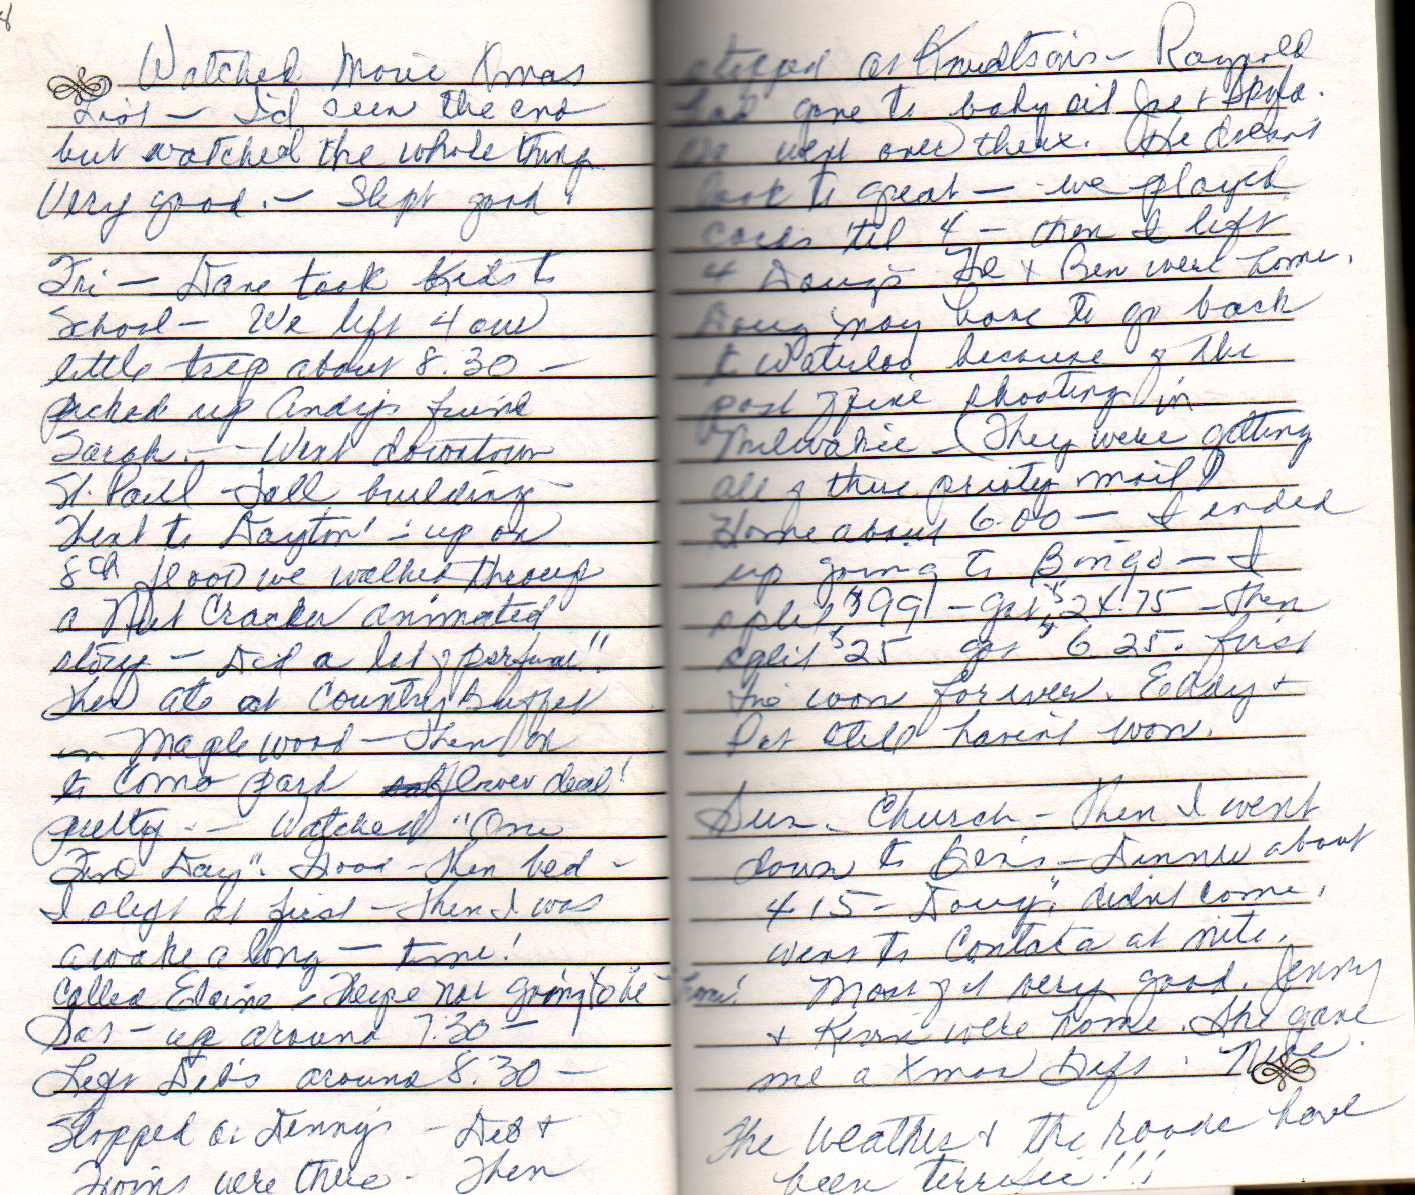 8
Watched Movie Xmas
List – I'd seen the end
but watched the whole thing
Very good. – Slept good
Fri – Dave took Kids to
School – We left 4 our
little trip about 8:30 –
picked up Andy's friend
Sarah. – Went downtown
St. Paul – Tall building –
Next to Dayton's – up on
8th floor we walked through
a Nut Cracker animated
story – Did a lot of perfume!!
Then ate at Country Buffet
in Maplewood – Then on
to Como park flower deal!
pretty. – Watched "One
Fine Day". Good – then bed –
I slept at first – then I was
awake a long – time!
Called Elaine – They're not going to be home!
Sat – up around 7:30 –
Left Deb's around 8:30 –
Stopped at Denny's – Deb +
Twins were there – Then
stopped at Knudtson's – Raynold
had gone to baby sit + 
went over there. He doesn't
look to great – we played
cards 'til 4 – then I left
4 Doug's He + Ben were home.
Doug may have to go back
to Waterloo because of the
post office shooting in
Milwakie – (They were getting
all of there priority mail)
Home about 6:00 – I ended
up going to Bingo – I
split $99 – got $24.75 – then
split $25 got $6.25. first
I've won forever. Eddy +
Pat still havin't won.
Sun. Church – Then I went
down to Ben's – Dinner about
4:15 – Doug's didn't come.
Went to Contata at nite.
Most of it very good. Jenny
+ Kevin were home. She gave
me a Xmas Gift. Nice.
The Weather + the roads have
been terrific!!!